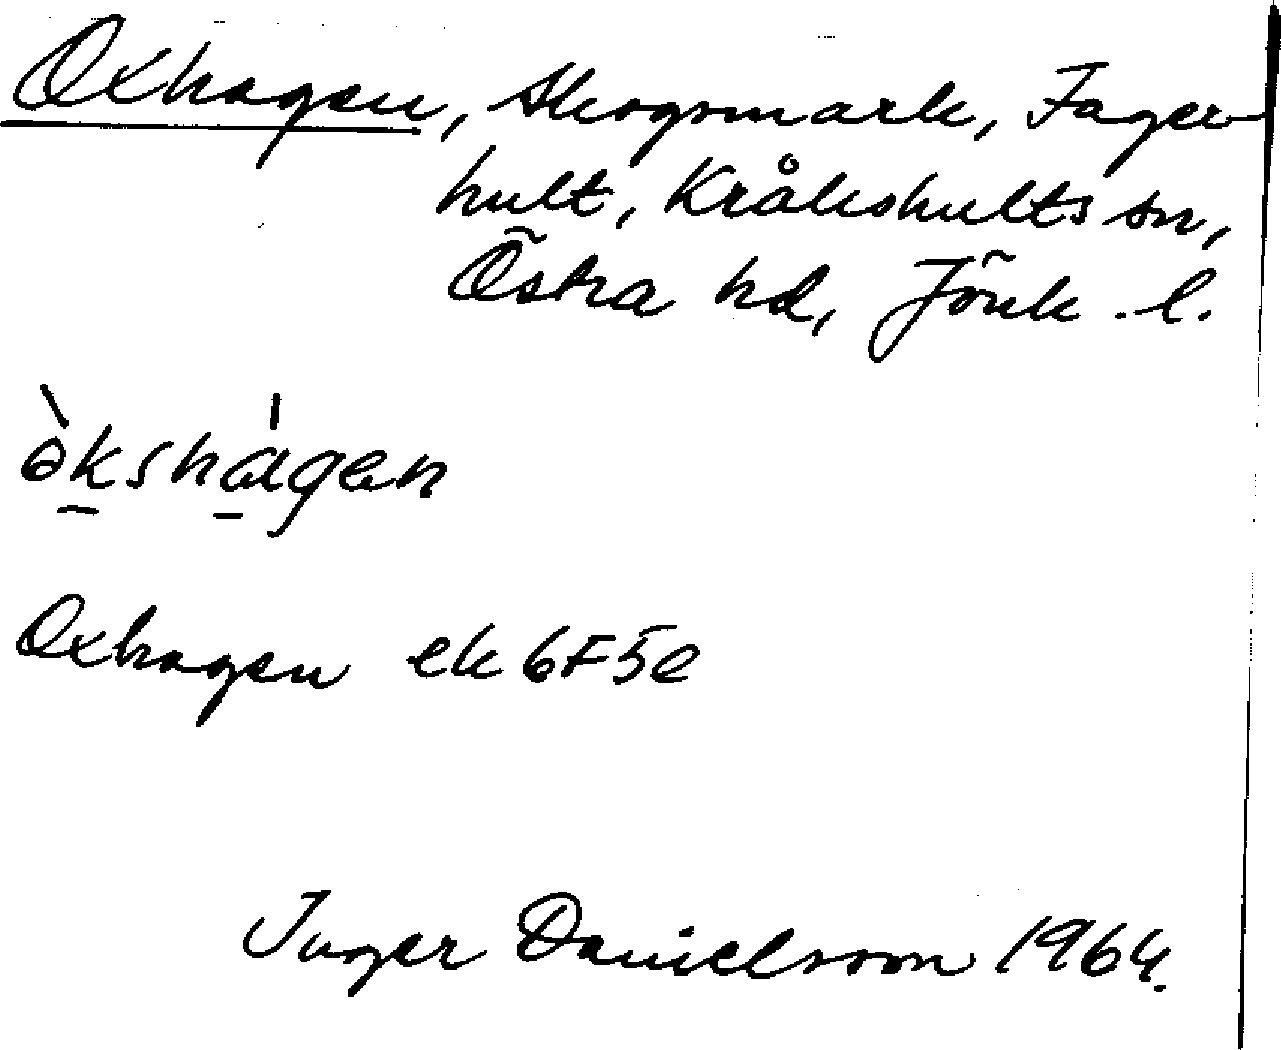 Oxhagen, skogsmark, Fager-
hult, Kråkshults sn,
Östra hd, Jönk. l.
òkshágen
Oxhagen ek 6F5e
Inger Danielsson 1964.